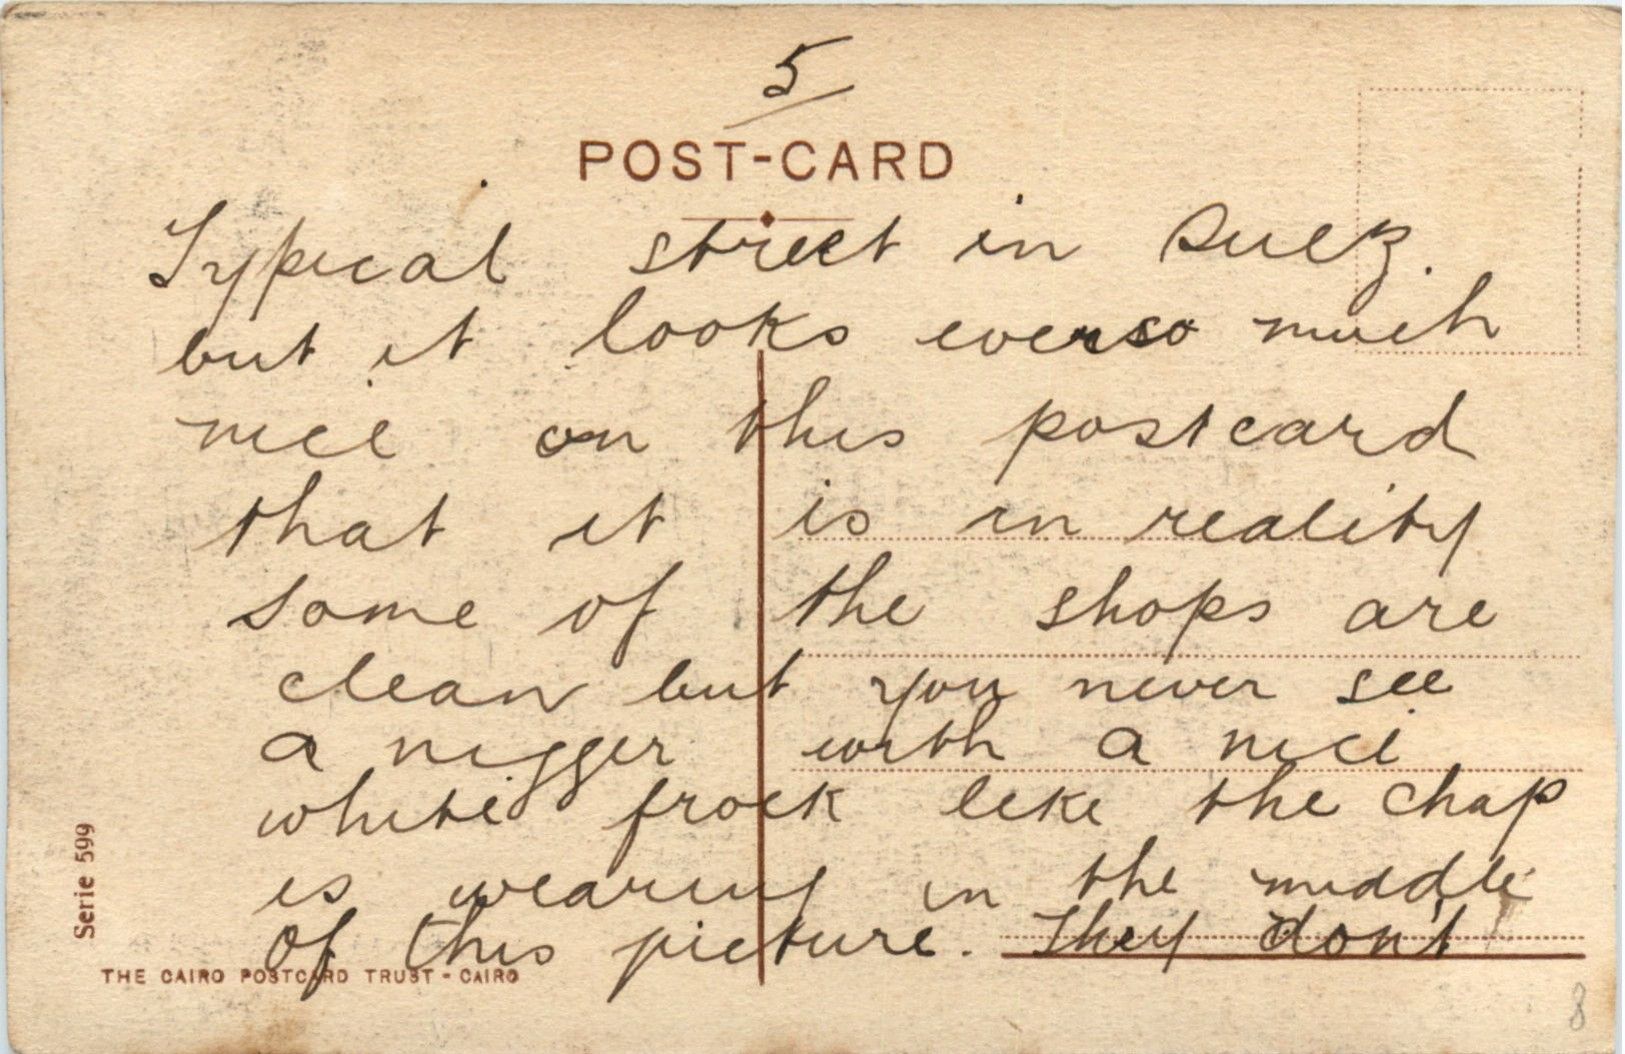 5
POST-CARD
Typical street in Suez.
but it looks everso much
nice on this postcard
that it is in reality
some of the shops are
clean but you never see
a nigger with a nice
white frock like the chap
is wearing in the middle
of this picture. They don't
Serie 599
THE CAIRO POSTCARD TRUST - CAIRO
8